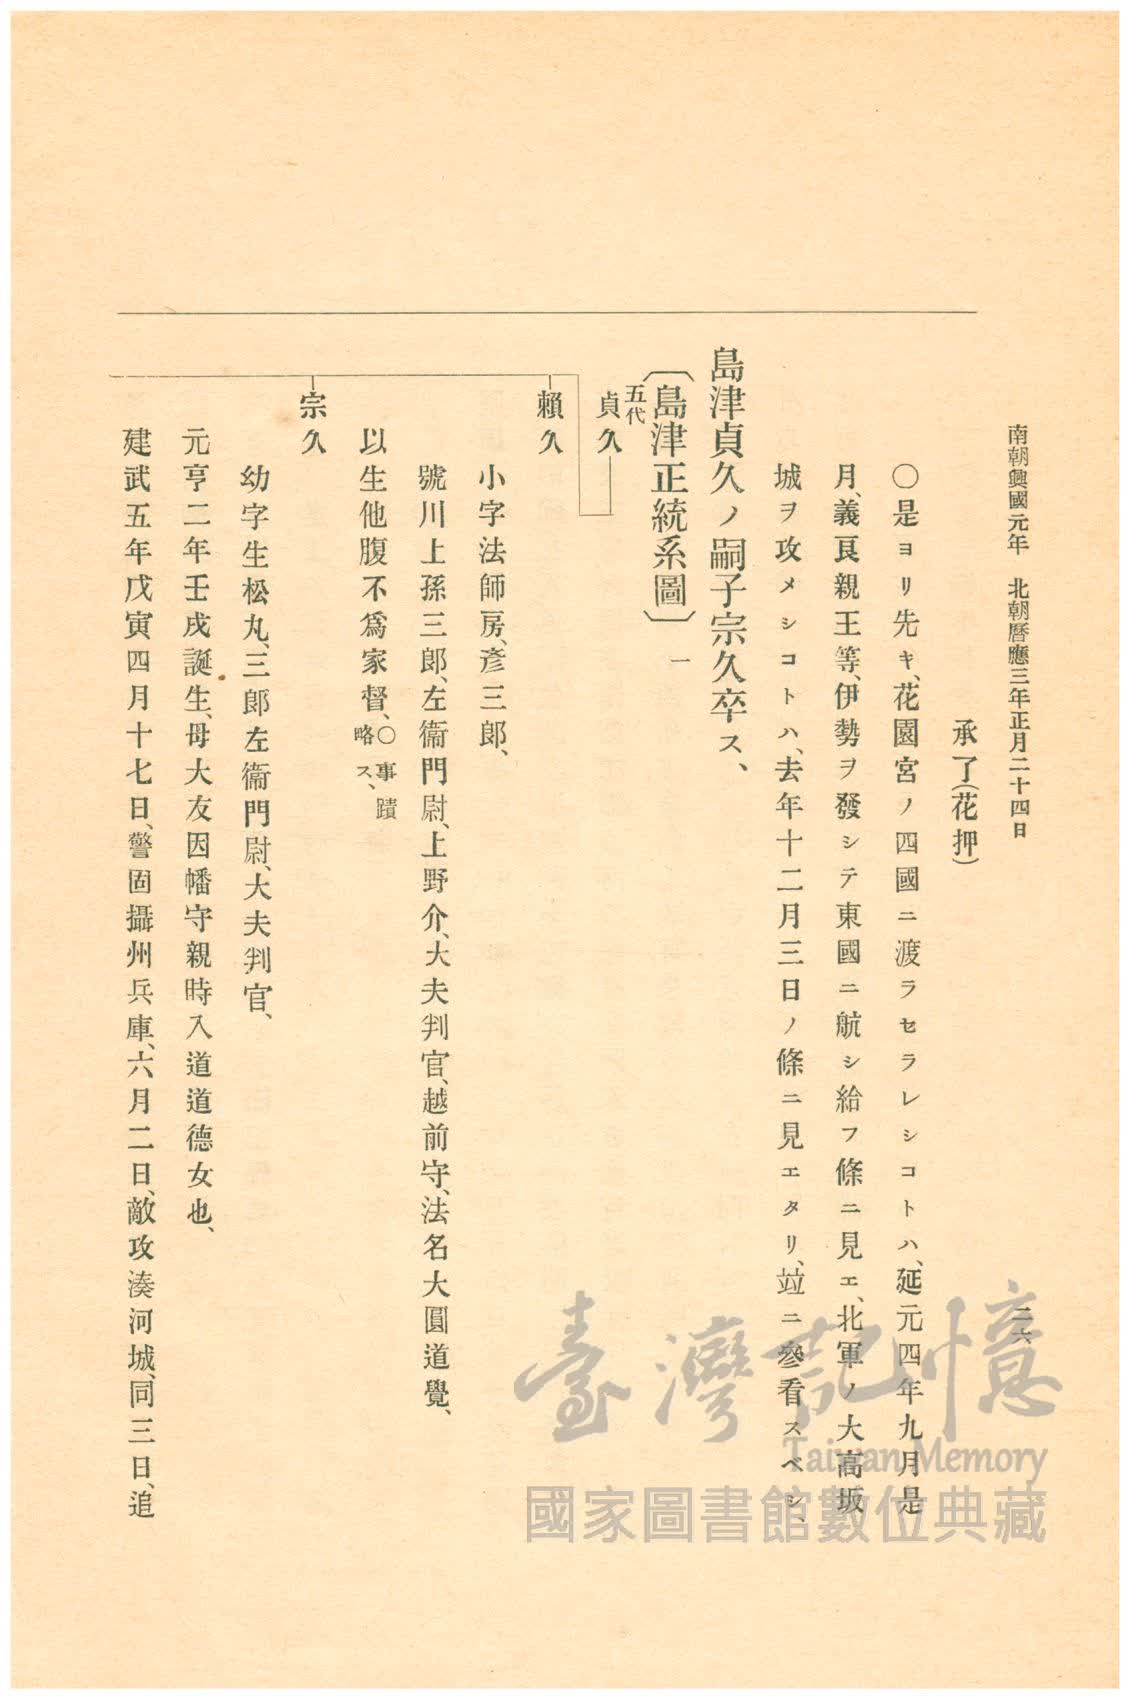 南朝興國元年　北朝曆應三年正月二十四日　二六
承了(花押)
○是ヨリ先キ、花園宮ノ四國ニ渡ラセラレシコトハ、延元四年九月是
月、義良親王等、伊勢ヲ發シテ東國ニ航シ給フ條ニ見エ、北軍ノ大高坂
城ヲ攻メシコトハ、去年十二月三日ノ條ニ見エタリ、竝ニ參看スベシ、
島津貞久ノ嗣子宗久卒ス、
〔島津正統系圖〕一
五代
貞久
賴久
小字法師房、彥三郎、
號川上孫三郎、左衞門尉、上野介、大夫判官、越前守、法名大圓道覺、
以生他腹不爲家督、○事蹟略ス、
宗久
幼字生松丸、三郎左衞門尉、大夫判官、
元亨二年壬戌誕生、母大友因幡守親時入道道德女也、
建武五年戊寅四月十七日、警固攝州兵庫、六月二日、敵攻湊河城、同三日、追
臺灣記憶
Taiwan Memory
國家圖書館數位典藏